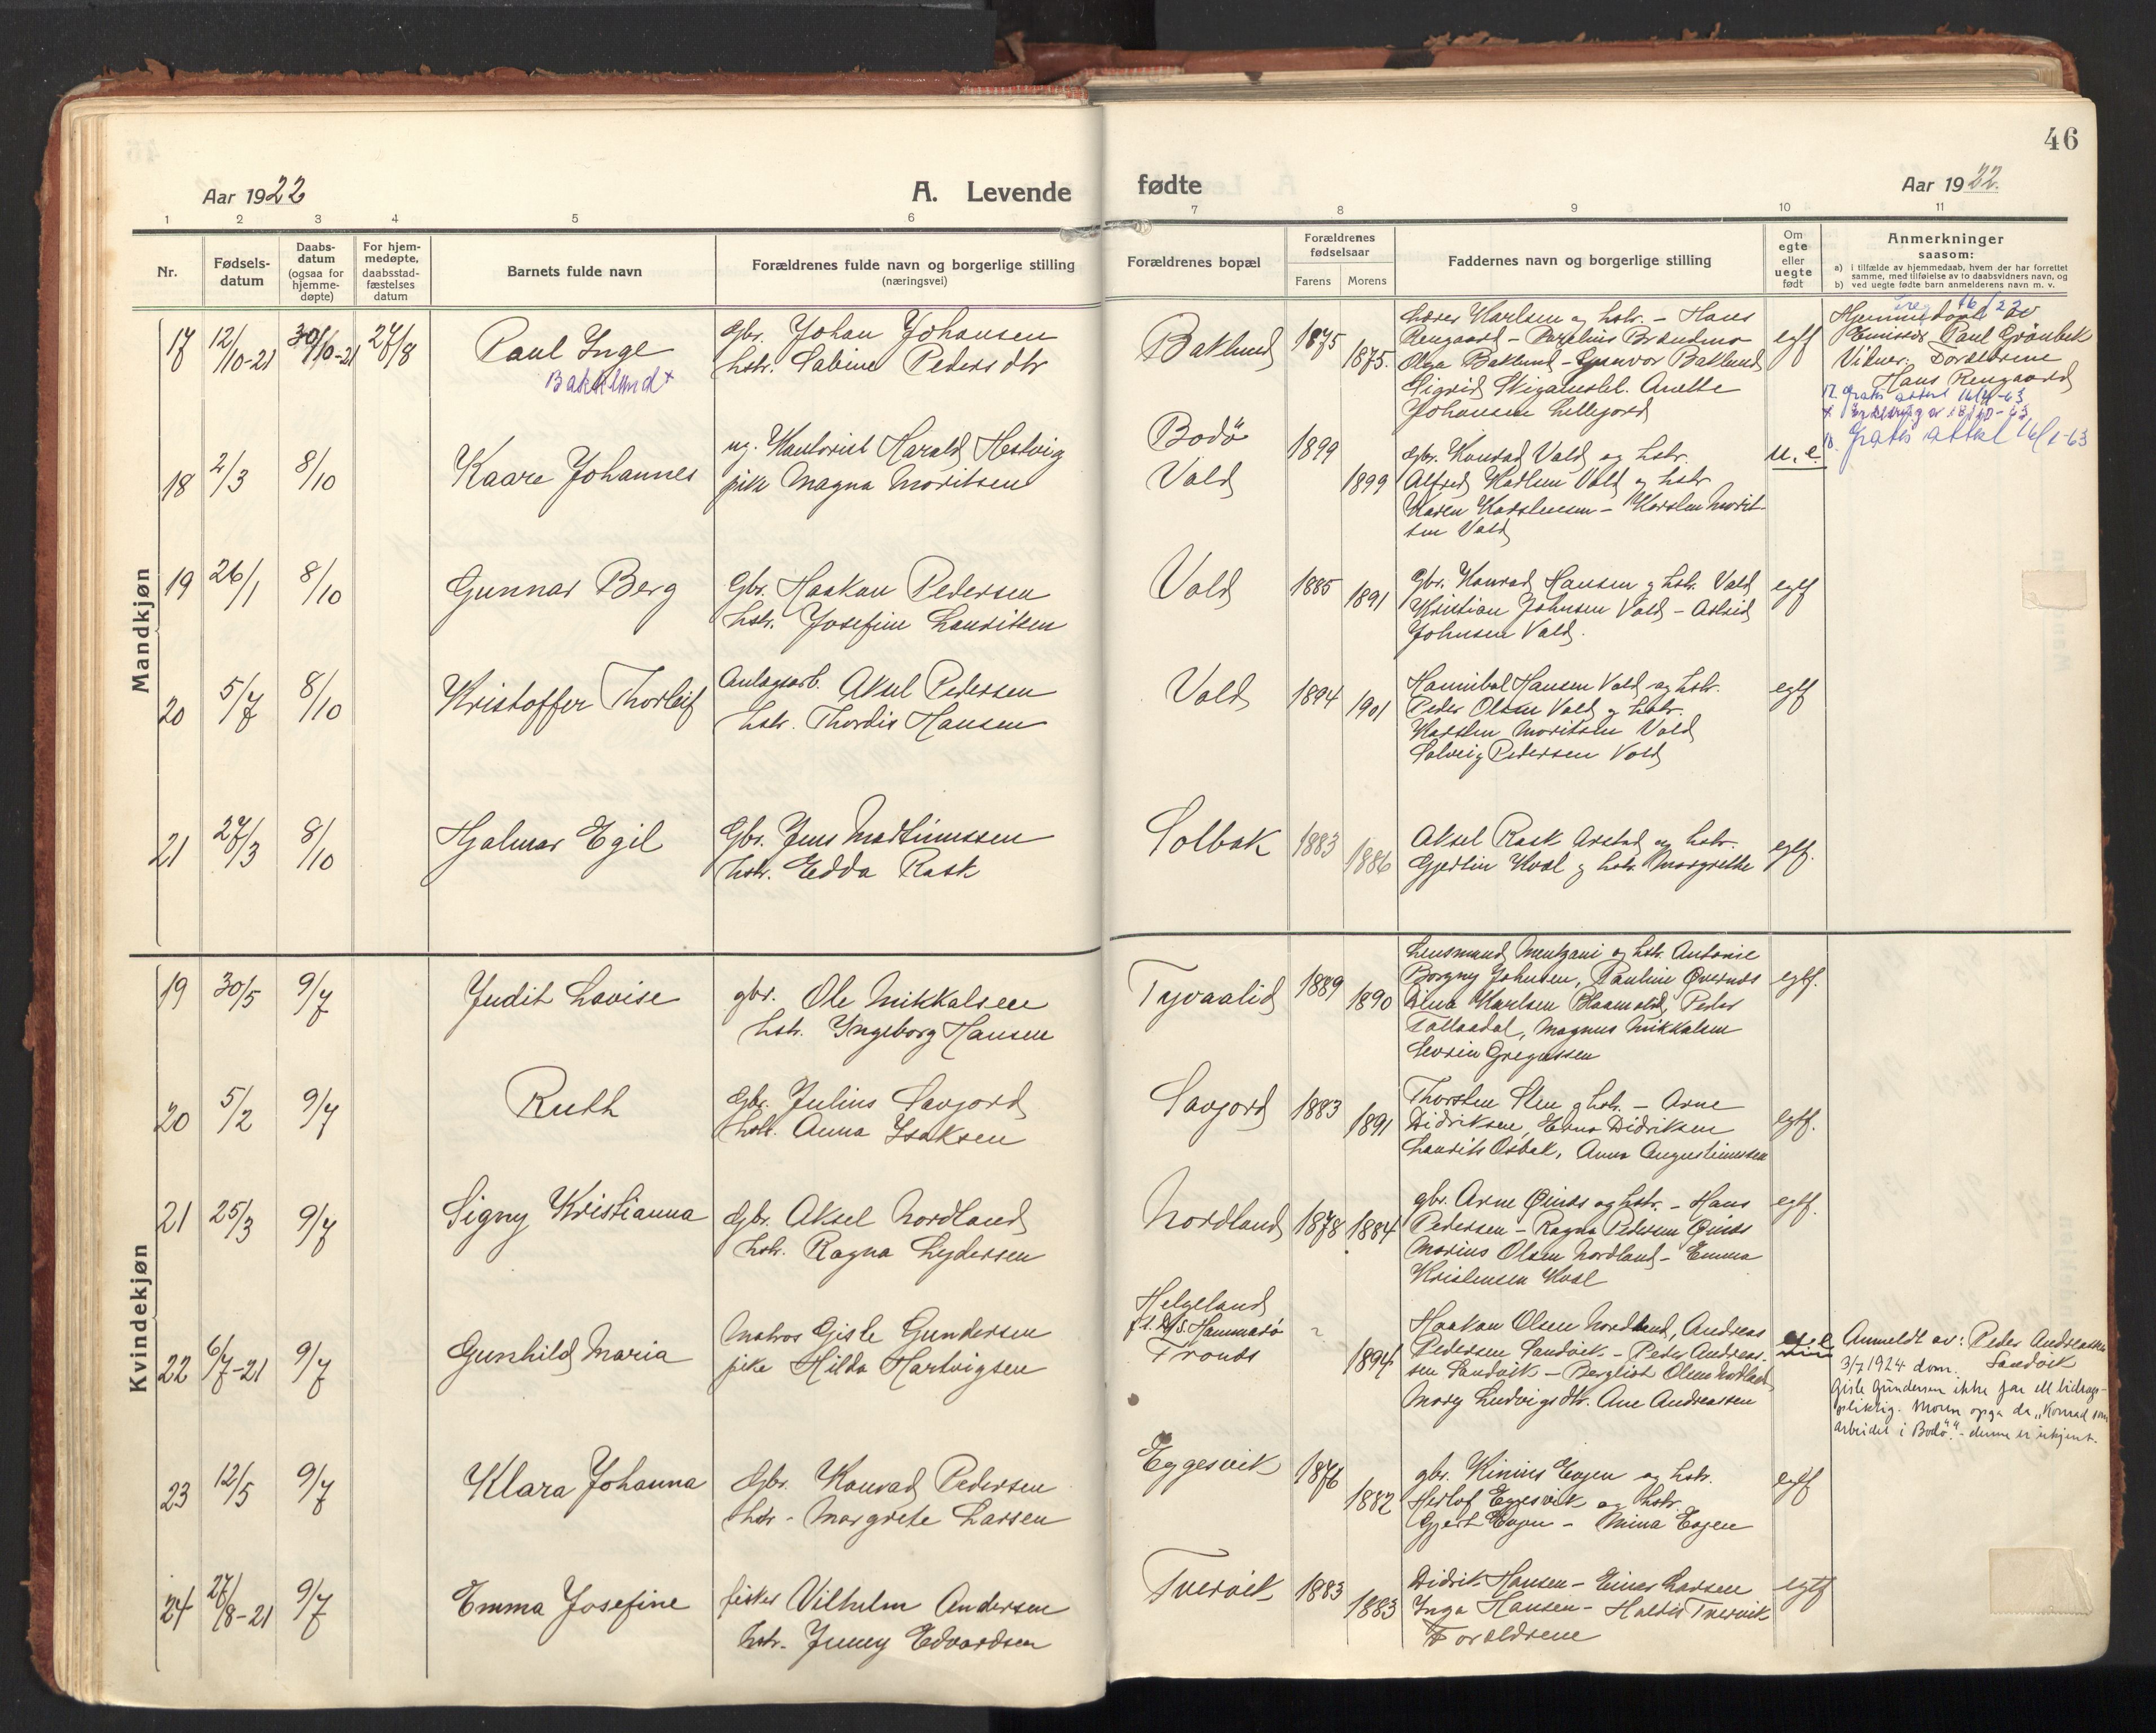 46
Aar 1922
A. Levende
fødte
Aar 1922.
1 2 3 4 5 6
7 8 9 10 11
Nr.
Fødsels-
datum
Daabs-
datum
(ogsaa for
hjemme-
døpte)
For hjem-
medøpte,
daabsstad-
fæstelses
datum
Barnets fulde navn
Forældrenes fulde navn og borgerlige stilling
(næringsvei)
Forældrenes bopæl
Forældrenes
fødselsaar
Farens
Morens
Faddernes navn og borgerlige stilling
Om
egte
eller
uegte
født
Anmerkninger
saasom:
a) i tilfælde av hjemmedaab, hvem der har forrettet
samme, med tilføielse av to daabsvidners navn, og
b) ved uegte fødte barn anmelderens navn m. v.
Mandkjøn
17 12/10-21 30/10-21 27/8
Paul Inge
Bakklund x
Gbr. Johan Johansen
hstr. Sabine Pedersdtr
Baklund
1875
1875.
Lærer Karlsen og hstr. - Hans
Rengaard
Olga Baklund - Gunvor Baklund
Sigrid Anethe
Johansen Lillejord
egtf
Hjemmedøbt av
Emissær Paul Grønbek
Vidner: Forældrene
Hans Rengaard
18 2/3 8/10
Kaare Johannes
ug. Kontorist Harald Hestvig
pike Magna Moritsen
Bodø
Vold
1899
1899
gbr. Konrad Vold og hstr.
Alfred Vold og hstr
Karen Karstensen - Karsten Morit-
sen Vold
u. e.
18. Gratis attest 16/1-63
19 26/1 8/10
Gunnar Berg
Gbr. Haakon Pedersen
hstr. Josefine Lauritsen
Vold
1885
1891
Gbr. Konrad Hansen og hstr. Vold
Kristian Johnsen Vold - Astrid
Johnsen Vold.
egtf
20 5/7 8/10
Kristoffer Thorleif
Anlægsarb. Aksel Pedersen
hstr. Thordis Hansen
Vold
1894
1901
Hannibal Hansen Vold og hstr.
Peder Olsen Vold og hstr.
Karsten Moritsen Vold
Solveig Pedersen Vold
egtf
21 27/3 8/10
Hjalmar Egil
Gbr. Jens Martinussen
hstr. Edda Rask
Solbak
1883
1886
Aksel Rask Arstad og hstr.
Gjertin Kval og hstr. Margrethe
egtf.
Kvindekjøn
19 30/5 9/7
Judit Lovise
gbr. Ole Mikkalsen
hstr. Ingeborg Hansen
Tyvaalid
1889
1890
Lensmand Mentzoni og hstr. Antonie
Borgny Johnsen, Pauline
Karlsen Peder
Tollaadal, Magnus Mikkalsen
Sevrin Gregussen
egtf.
20 5/2 9/7
Ruth
Gbr. Julius Savjord
hstr. Anna Isaksen
Savjord
1883
1891
Thorsten Sten og hstr. - Arne
Didriksen, Erna Didriksen
Laurits Osbak, Anna Augustinussen
egtf.
21 25/3 9/7
Signy Kristianna
Gbr. Aksel Nordland
hstr. Ragna Lydersen
Nordland
1878 1884
gbr. Arne Øinæs og hstr. - Hans
Pedersen - Ragna Pedersen Øinæs
Marius Olsen Nordland - Emma
Kristensen Kval
egtf.
22 6/7-21 9/7
Gunhild Maria
Matros Gisle Gundersen
pike Hilda Hartvigsen
Helgeland
Tronæs
?
1894
Haakon Olsen Nordland, Andreas
Pedersen Sandvik - Peder Andreas-
sen Sandvik - Bergliot Olsen Nordland
Mary Ludvigsdtr. Ane Andreassen
Anmeldt av: Peder Andreassen
Sandvik
3/7 1924 dom.
Gisle Gundersen ikke far ell bidrags-
pliktig. Moren opga da "Konrad som
arbeidet i Bodø" - denne er ukjent.
23 12/5 9/7
Klara Johanna
Gbr. Konrad Pedersen
hstr - Margrete Larsen
Eggesvik
1876
1882
gbr. Kinius Evjen og hstr.
Herlof Eggesvik og hstr.
Gjert Evjen - Mina Evjen
egtf
24 27/8-21 9/7
Emma Josefine
fisker Vilhelm Andersen
hstr. Jenny Edvardsen
Tvervik
1883
1883
Didrik Hansen - Einar Larsen
Inga Hansen - Haldis Tvervik
Forældrene
egtf